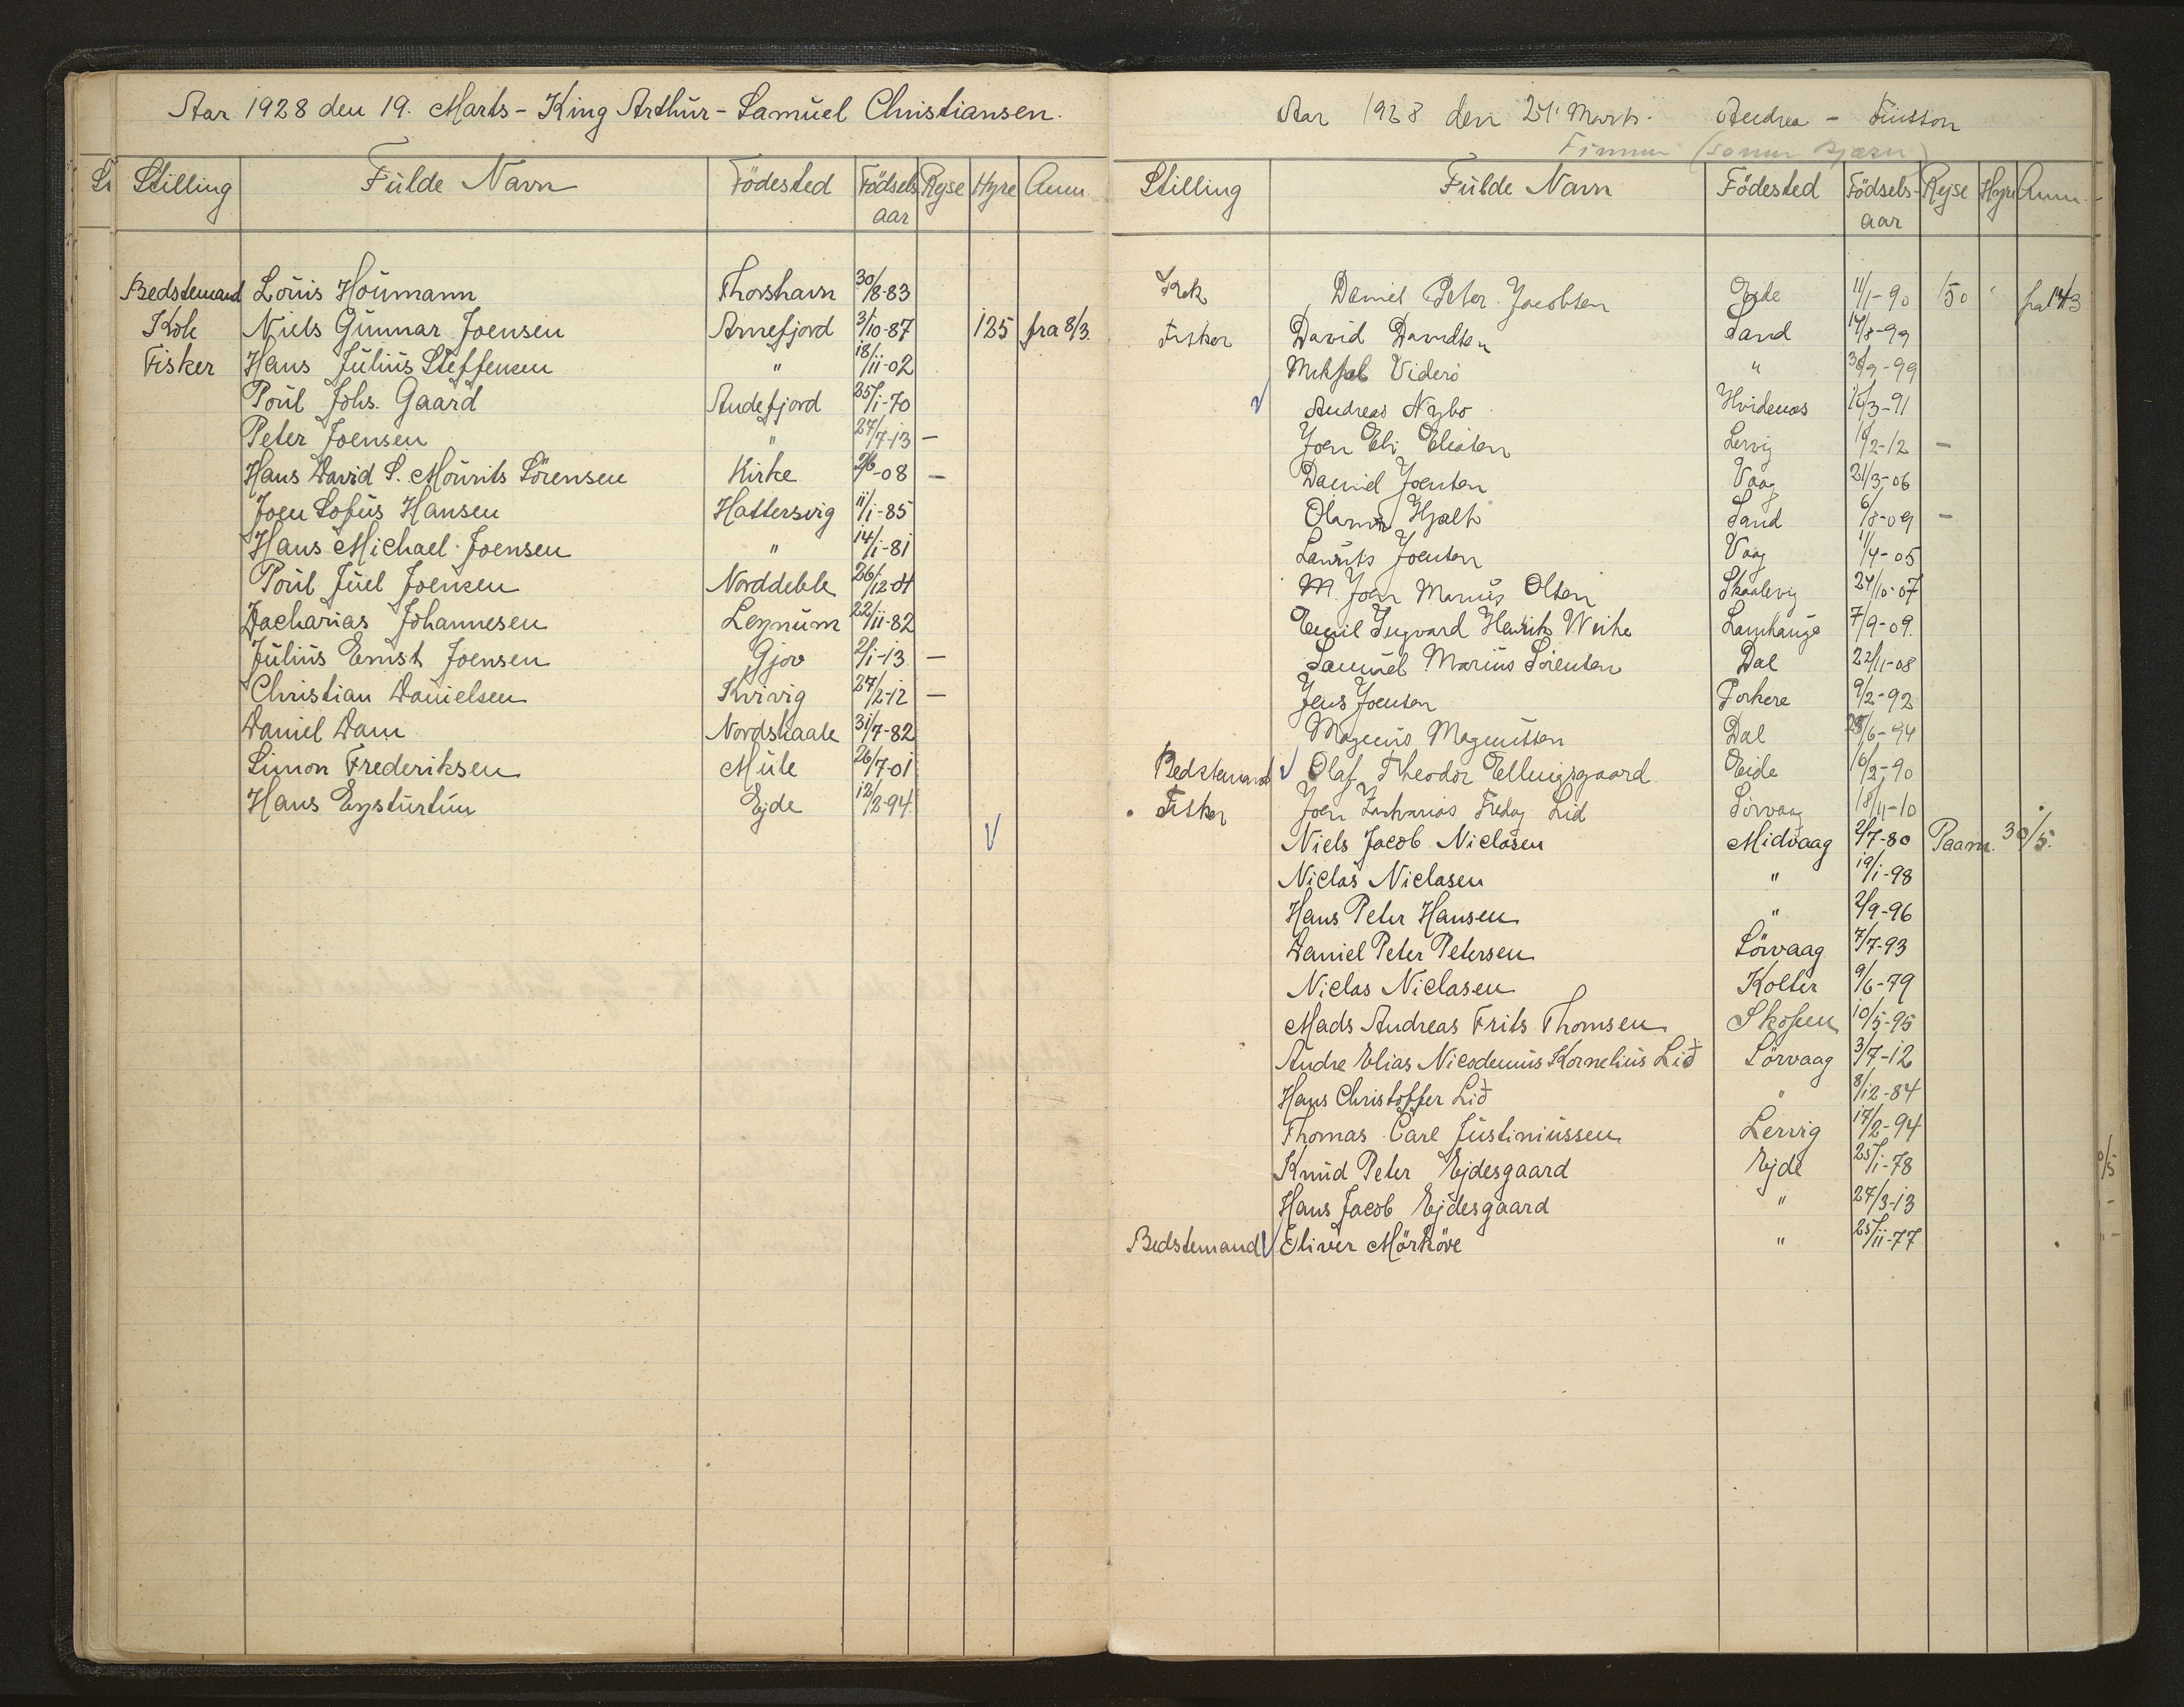 Aar 1928 den 19. Marts - King Arthur - Samuel Christiansen.
Stilling Fulde Navn Födested Födsels aar Rejse Hyre Anm.
Bedstemand Louis Houmann Thorshavn 30/8-83
Kok Niels Gunnar Joensen Arnefjord 3/10-87 125 fra 8/3.
Fisker Hans Julius Steffensen " 18/11-02
Poul Johs. Gaard Andefjord 25/1-70
Peter Joensen " 27/7-13 -
Hans David S. Mourits Sörensen Kirke 2/6-08 -
Joen Sofus Hansen Hattersvig 11/1-85
Hans Michael Joensen " 14/1-81
Poul Juel Joensen Norddeble 26/12-04
Zacharias Johannesen Leynum 22/11-82
Julius Ernst Joensen Gjov 2/1-13 -
Christian Danielsen Kvivig 27/2-12 -
Daniel Dam Nordskaale 31/7-82
Simon Frederiksen Mule 26/7-01
Hans Eysturtun Ejde 12/2-94.
Aar 1928 den 21' Marts. Andrea - Finsson
Finnur (sonur
Stilling Fulde Navn Födested Födsels- aar Rejse Hyre Anm.
Kok Daniel Peter Jacobsen Ejde 11/1-90 150 fra 14/3
Fisker David Davidsen Sand 14/8-99
Mikkel Viderö " -99
Andreas Nybo Hvidenæs 12/3-91
Joen Eli Eliasen Lervig 16/2-12 -
Daniel Joensen Vaag 21/3-06
Hjalt Sand 6/8-09 -
Laurits Joensen Vaag 11/4-05
M. Joen Marius Olsen Skaalevig 24/10-07
Emil Ingvard Henrik Weihe Lamhauge 7/9-09.
Samuel Marius Sörensen Dal 22/11-08
Jens Joensen Porkere 9/2-92
Magnus Magnussen Dal 28/6-94
Bedstemand Olaf Theodor Ellingsgaard Eide 10/2-90
Fisker Joen Zacharias Fredag Lid Sörvaag 18/11-10
Niels Jacob Niclasen Midvaag 2/7-80 Paam. 30/5.
Niclas Niclasen " 19/1-98
Hans Peter Hansen " 2/9-96
Daniel Peter Petersen Sörvaag 7/7-93
Niclas Niclasen Kolter 9/6-79
Mads Andreas Frits Thomsen Skofun 10/5-95
Andre Elias Nicodemus Kornelius Lið Sörvaag 3/7-12
Hans Christoffer Lið " 8/12-84
Thomas Carl Justinussen Lervig 17/2-94
Knud Peter Ejdesgaard Ejde 25/1-78
Hans Jacob Ejdesgaard " 27/3-13
Bedstemand Oliver Mörköre " 25/11-77